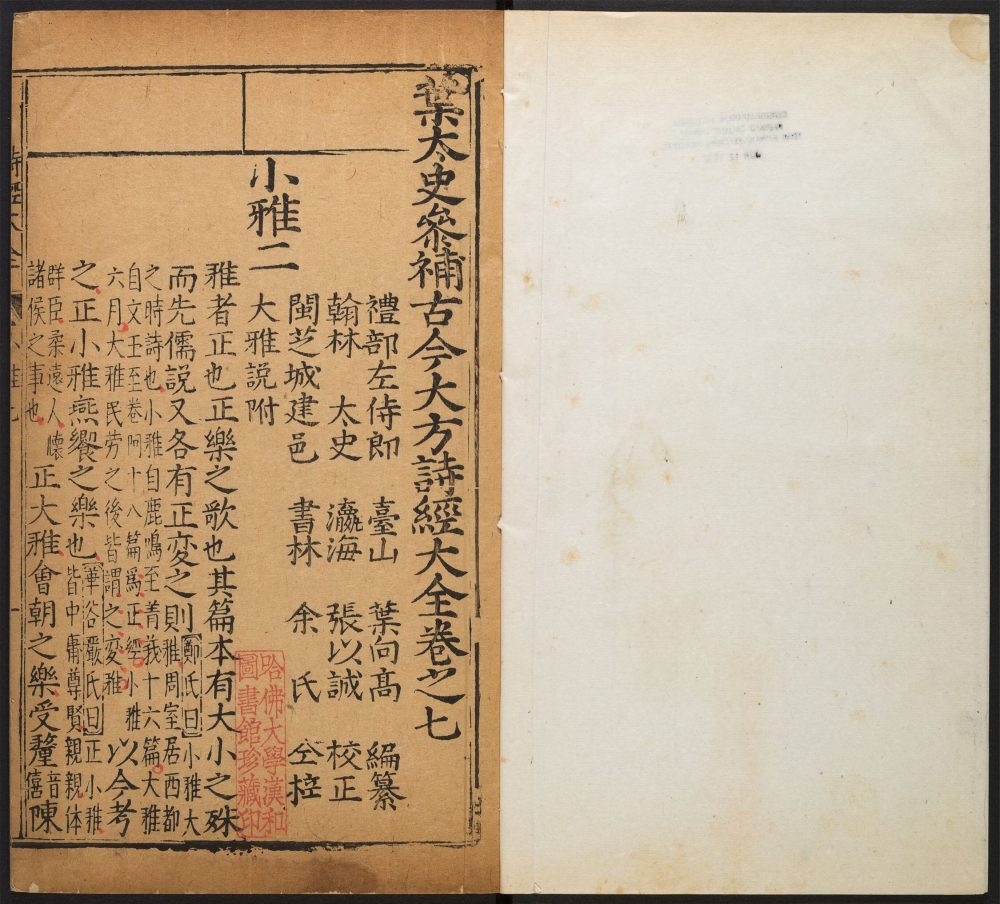 葉太史參補古今大方詩經大全卷之七
禮部左侍郎 臺山 葉向髙 編纂
翰林 太史 瀛海 張以誠 校正
閩芝城建邑 書林 余氏 仝梓
小雅二 大雅説附
雅者正也正樂之歌也其篇本有大小之殊
而先儒説又各有正变之則
鄭氏曰小雅大
雅周室居西都
之時詩也小雅自鹿鳴至菁莪十六篇大雅
自文王至卷阿十八篇爲正經小雅
六月大雅民劳之後皆謂之变雅
以今考
之正小雅燕饗之樂也
華谷嚴氏曰正小雅
皆中庸尊賢親親体
群臣柔遠人懷
諸侯之事也
正大雅會朝之樂受釐
音
僖
陳
哈佛大學漢和
圖書館珍藏印
詩經大全